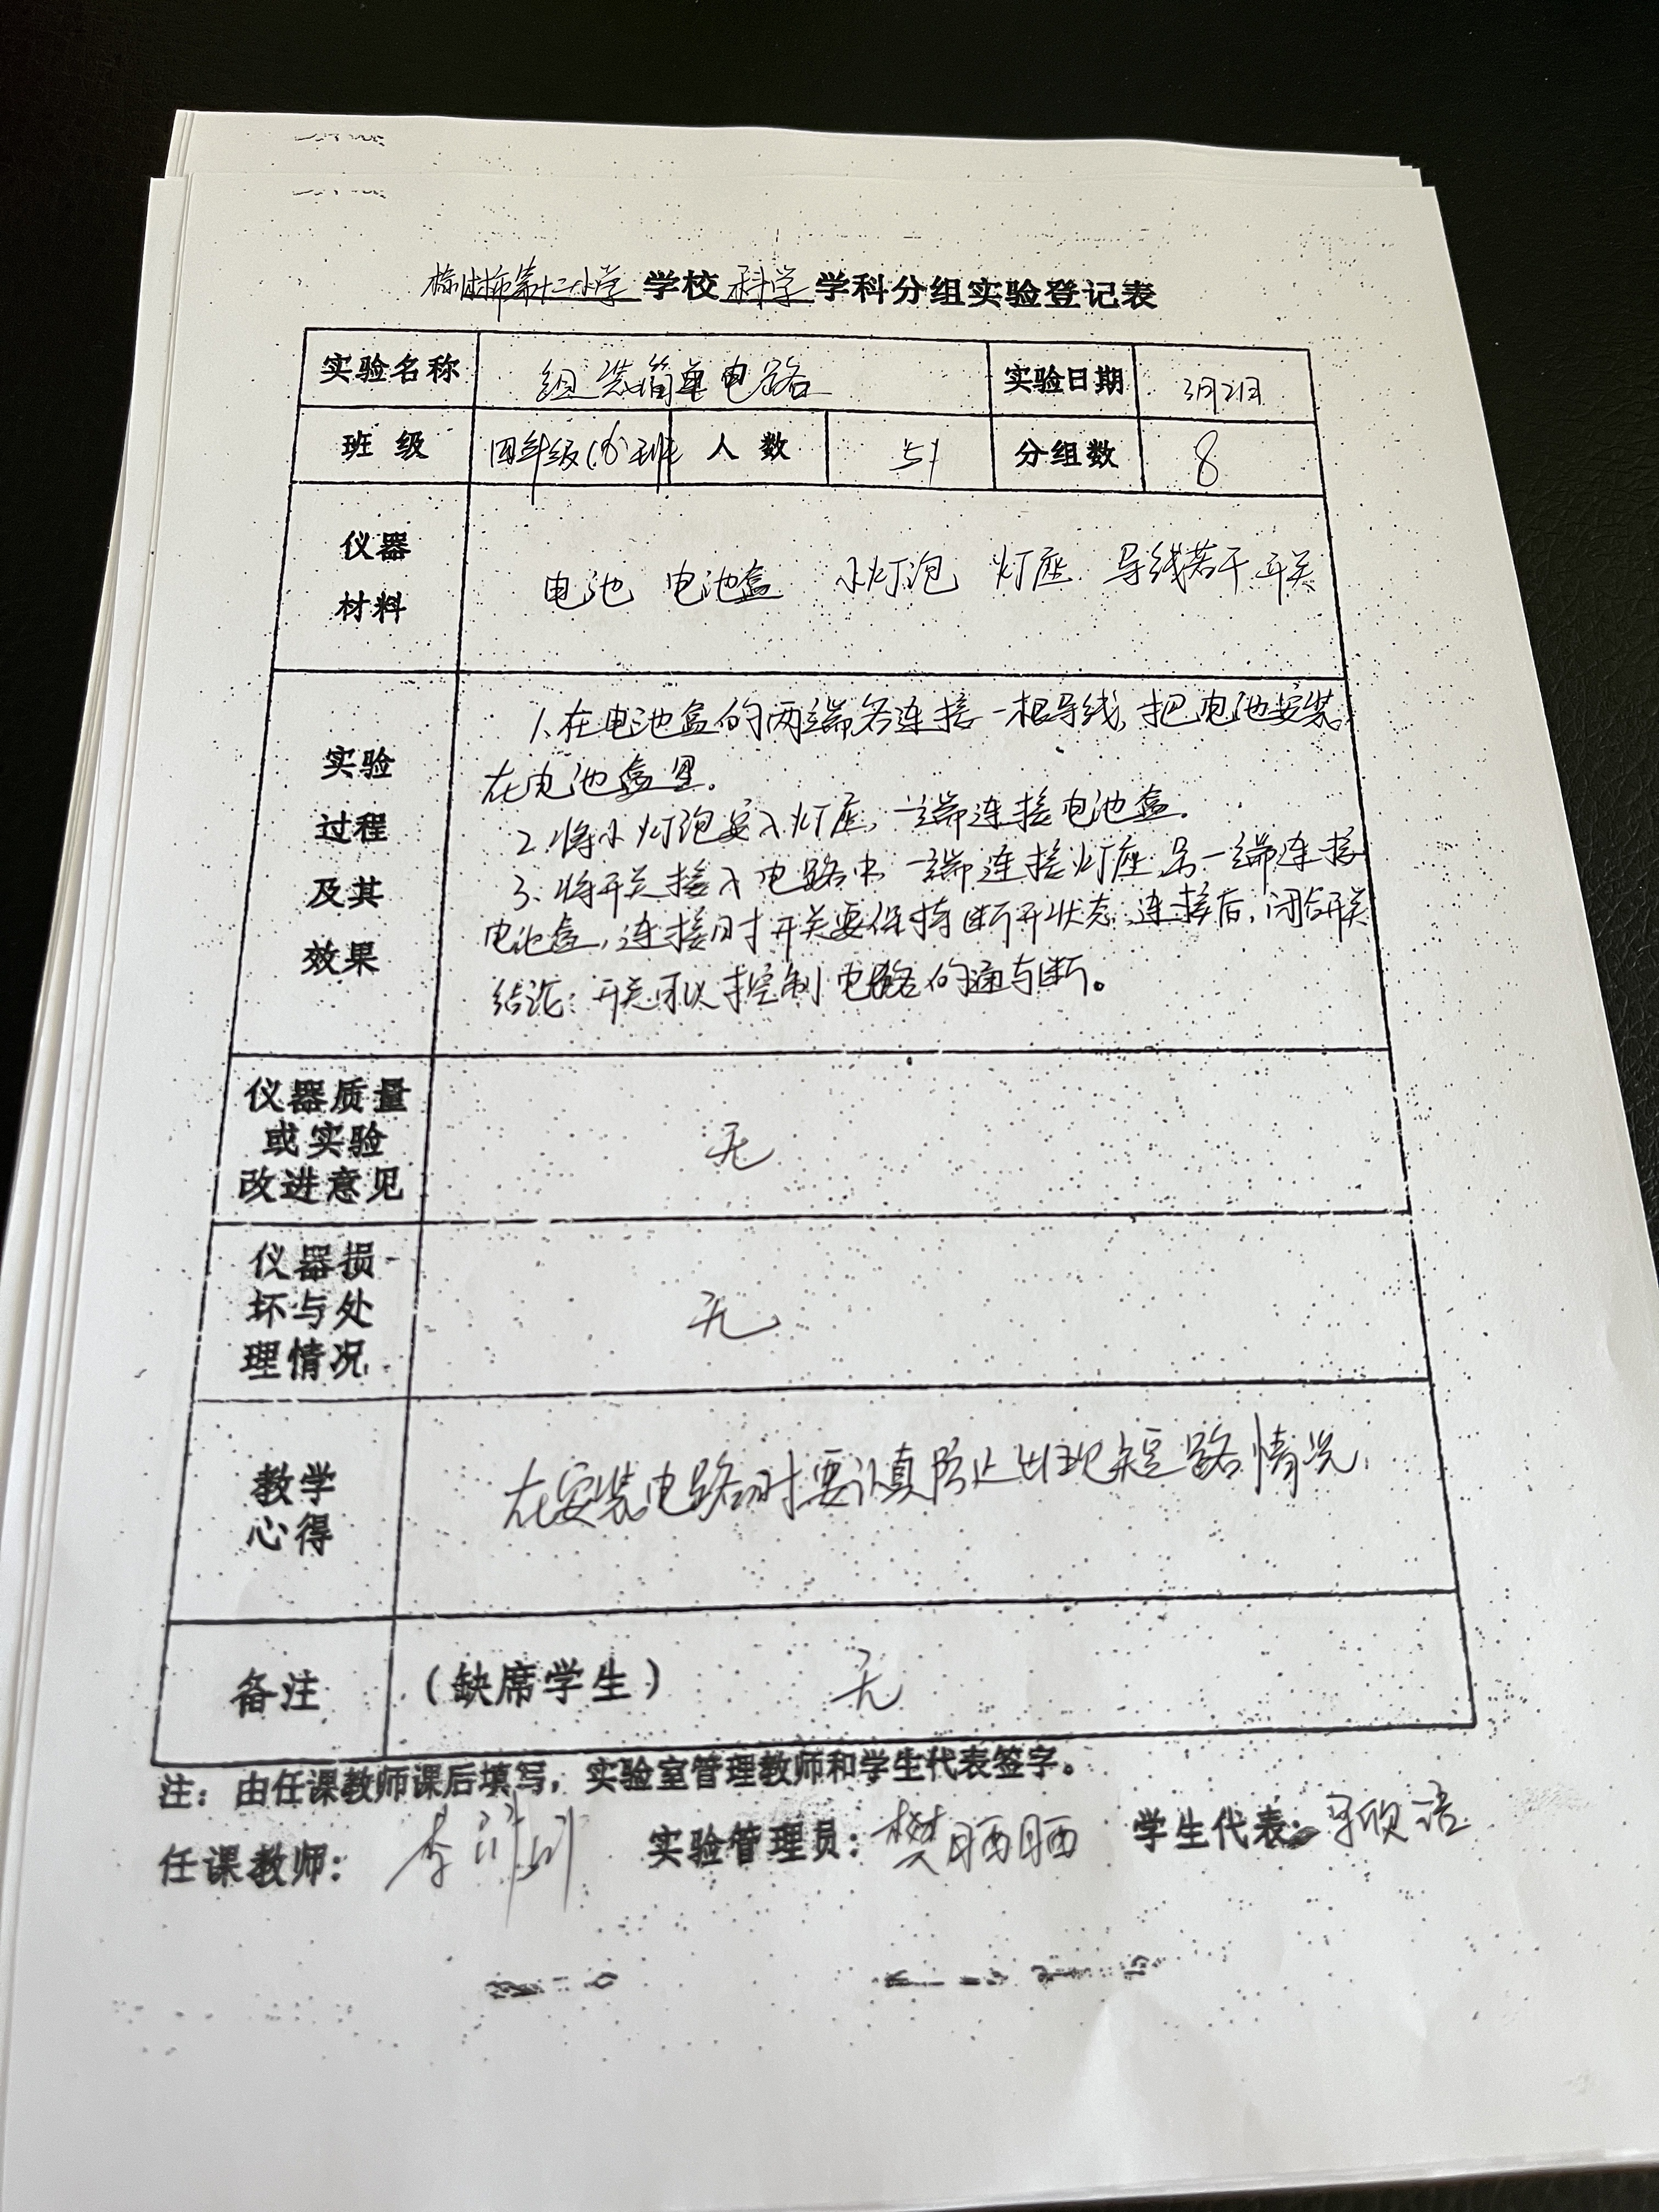 榆树市第十二小学 学校 科学 学科分组实验登记表
实验名称 组装简单电路 实验日期 3月21日
班级 四年级(8)班 人数 51 分组数 8
仪器
材料
电池 电池盒 小灯泡 灯座 导线若干 开关
实验
过程
及其
效果
1、在电池盒的两端各连接一根导线,把电池安装
在电池盒里。
2、将小灯泡安入灯座,一端连接电池盒。
3、将开关接入电路中一端连接灯座,另一端连接
电池盒,连接时开关要保持断开状态,连接后,闭合开关
结论:开关可以控制电路的通与断。
仪器质量
或实验
改进意见
无
仪器损
坏与处
理情况
无
教学
心得
在安装电路时要认真防止出现短路情况.
备注 (缺席学生) 无
注:由任课教师课后填写,实验室管理教师和学生代表签字。
任课教师: 李 实验管理员:樊晒晒 学生代表: 欣语